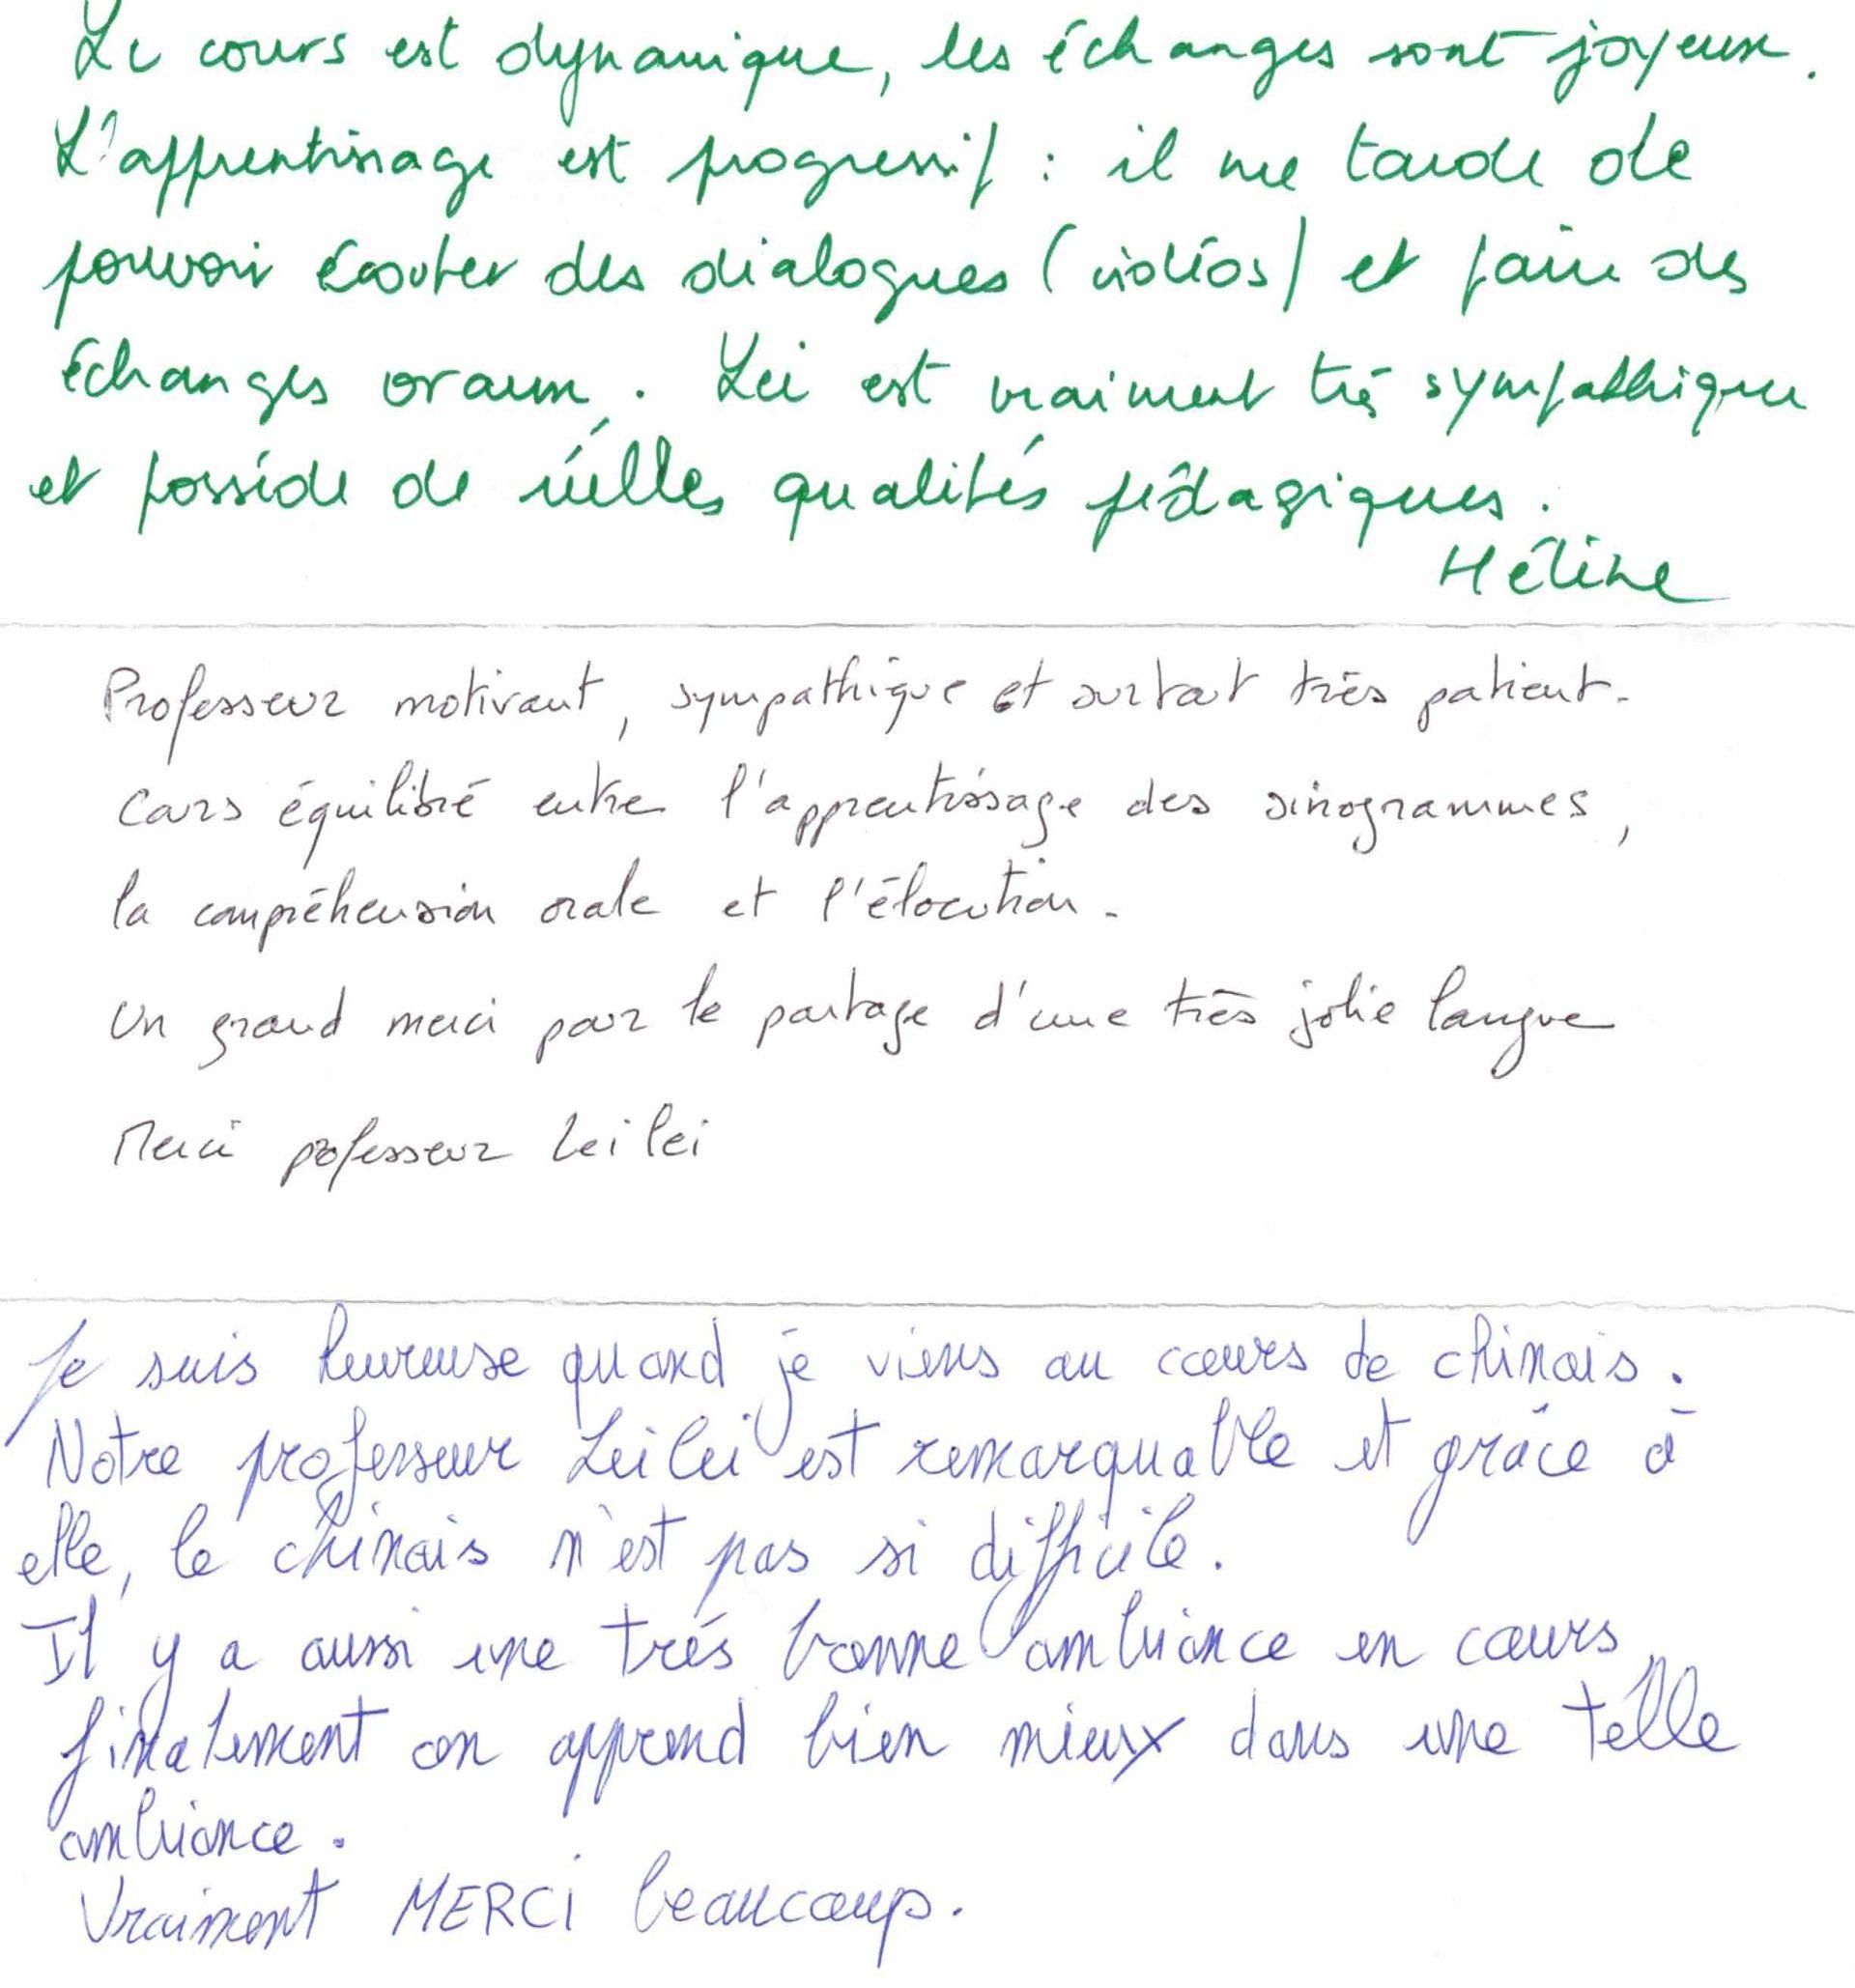 Le cours est dynamique, les échanges sont joyeux.
L'apprentissage est progressif : il me tarde de
pouvoir écouter des dialogues (vidéos) et faire des
échanges oraux. Lei est vraiment très sympathique
et possède de réelles qualités pédagiques.
Hélène
Professeur motivant, sympathique et surtout très patient.
Cours équilibré entre l'apprentissage des sinogrammes,
la compréhension orale et l'élocution.
Un grand merci pour le partage d'une très jolie langue
Merci professeur Lei lei
Je suis heureuse quand je viens au cours de chinois.
Notre professeur Leilei est remarquable et grâce à
elle, le chinois n'est pas si difficile.
Il y a aussi une très bonne ambiance en cours,
finalement on apprend bien mieux dans une telle
ambiance.
Vraiment MERCI beaucoup.